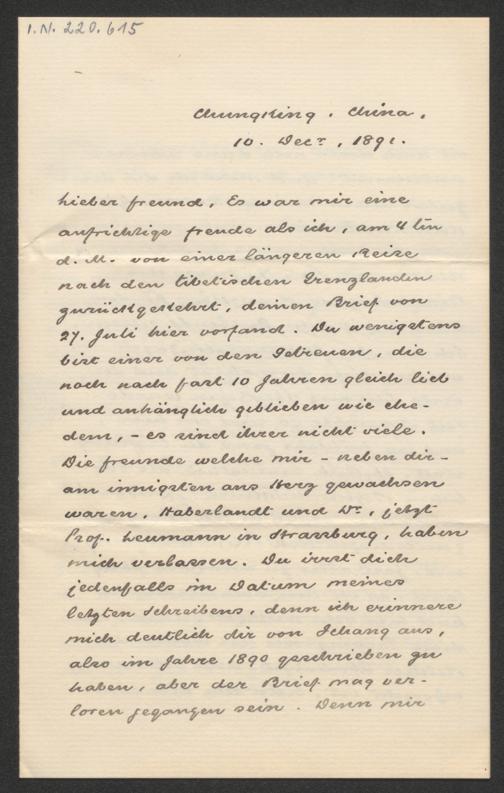 I.N. 220.615
Chungking. China.
10. Decr, 1891.
Lieber Freund, Es war mir eine
aufrichtige Freude als ich, am 4ten
d. M. von einer längeren Reise
nach den tibetischen Grenzlanden
zurückgekehrt, deinen Brief von
27. Juli hier vorfand. Du wenigstens
bist einer von den Getreuen, die
noch nach fast 10 Jahren gleich lieb
und anhänglich geblieben wie ehe-
dem, – es sind ihrer nicht viele.
Die Freunde welche mir – neben dir –
am innigsten ans Herz gewachsen
waren, Haberlandt und Dr., jetzt
Prof. Leumann in Strassburg, haben
mich verlassen. Du irrst dich
jedenfalls im Datum meines
letzten Schreibens, denn ich erinnere
mich deutlich dir von Ichang aus,
also im Jahre 1890 geschrieben zu
haben, aber der Brief mag ver-
loren gegangen sein. Denn mir